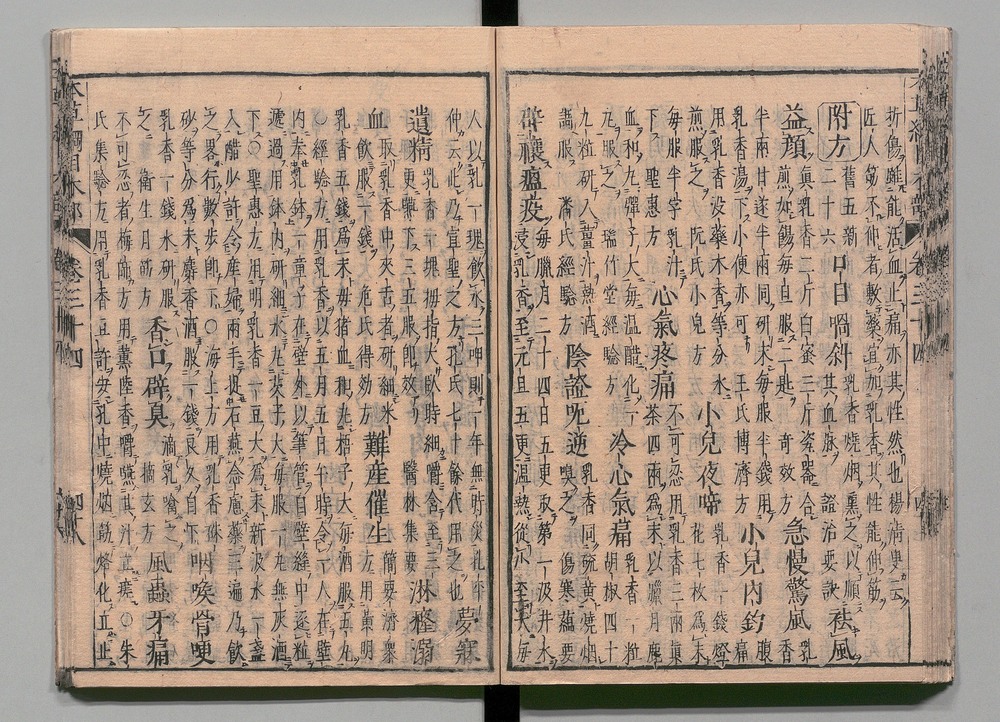 折傷雖能活血止痛亦其性然也楊清叟云
匠人筋不伸者敷藥宜加乳香其性能伸筋
附方 舊五新二十六 口目喎斜 乳香燒烟熏之以順其血脉 證治要訣 祛風
益顏 真乳香二斤白蜜三斤瓷器合煎如餳每旦服二匙 奇效方 急慢驚風 乳香
半兩甘遂半兩同研末每服半錢用
乳香湯下小便亦可 王氏博濟方 小兒內釣 腹痛
用乳香没藥木香等分水煎服之 阮氏小兒方 小兒夜啼 乳香一錢燈花七枚爲末
每服半字乳汁下 聖惠方 心氣疼痛 不可忍用乳香三兩真茶四兩爲末以臘月鹿
血和丸彈子大每温醋化一丸 瑞竹堂經驗方 冷心氣痛 乳香一粒胡椒四十
九粒研入薑汁熱酒調服 潘氏經驗方 陰證呃逆 乳香同硫黄燒烟嗅之 傷寒蘊要
辟禳瘟疫 每臘月二十四日五更取第一汲井水浸乳香至元旦五更温熱從小至大每
人以乳一塊飲水三呷則一年無時災孔平
仲云此乃宣聖之方孔氏七十餘代用之也 夢寐
遺精 乳香一塊拇指大臥時細嚼含至三更嚥下三五服即效 醫林集要 淋癃溺
血 取乳香中夾石者研細米飲服一錢 危氏得效方 難産催生 簡要濟衆方用黄明
乳香五錢爲末母猪血和丸梧子大每酒服五丸
○經驗方用乳香以五月五日午時令一人在壁
内奉乳鉢一童子在壁外以筆管自壁縫中逐粒
遞過用鉢内研細水丸芡子大每服一丸無灰酒
下○聖惠方用明乳香一豆大爲末新汲水一盞
入醋少許令産婦兩手捉石燕念慮藥三遍乃飲
之畧行數步即下○海上方用乳香硃
砂等分爲末麝香酒服一錢良久自下 咽喉骨哽
乳香一錢水研服之 衛生易簡方 香口辟臭 滴乳噙之 摘玄方 風蟲牙痛
不可忍者梅師方用薰陸香嚼嚥其汁立瘥○朱
氏集驗方用乳香豆許安孔中燒烟筯烙化立止
本草綱目木部 卷三十四